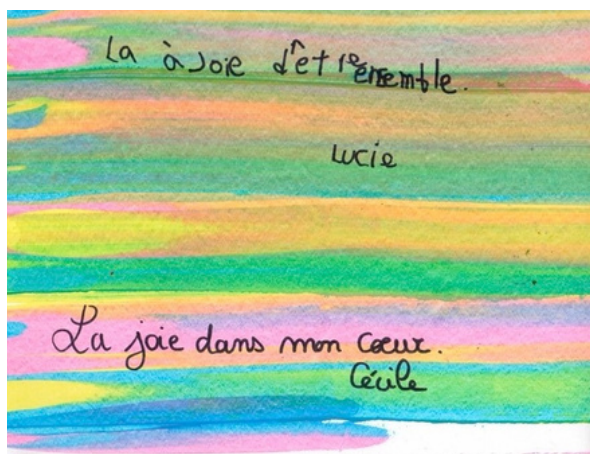 La à Joie d'être ensemble.
Lucie
La joie dans mon cœur.
Cécile